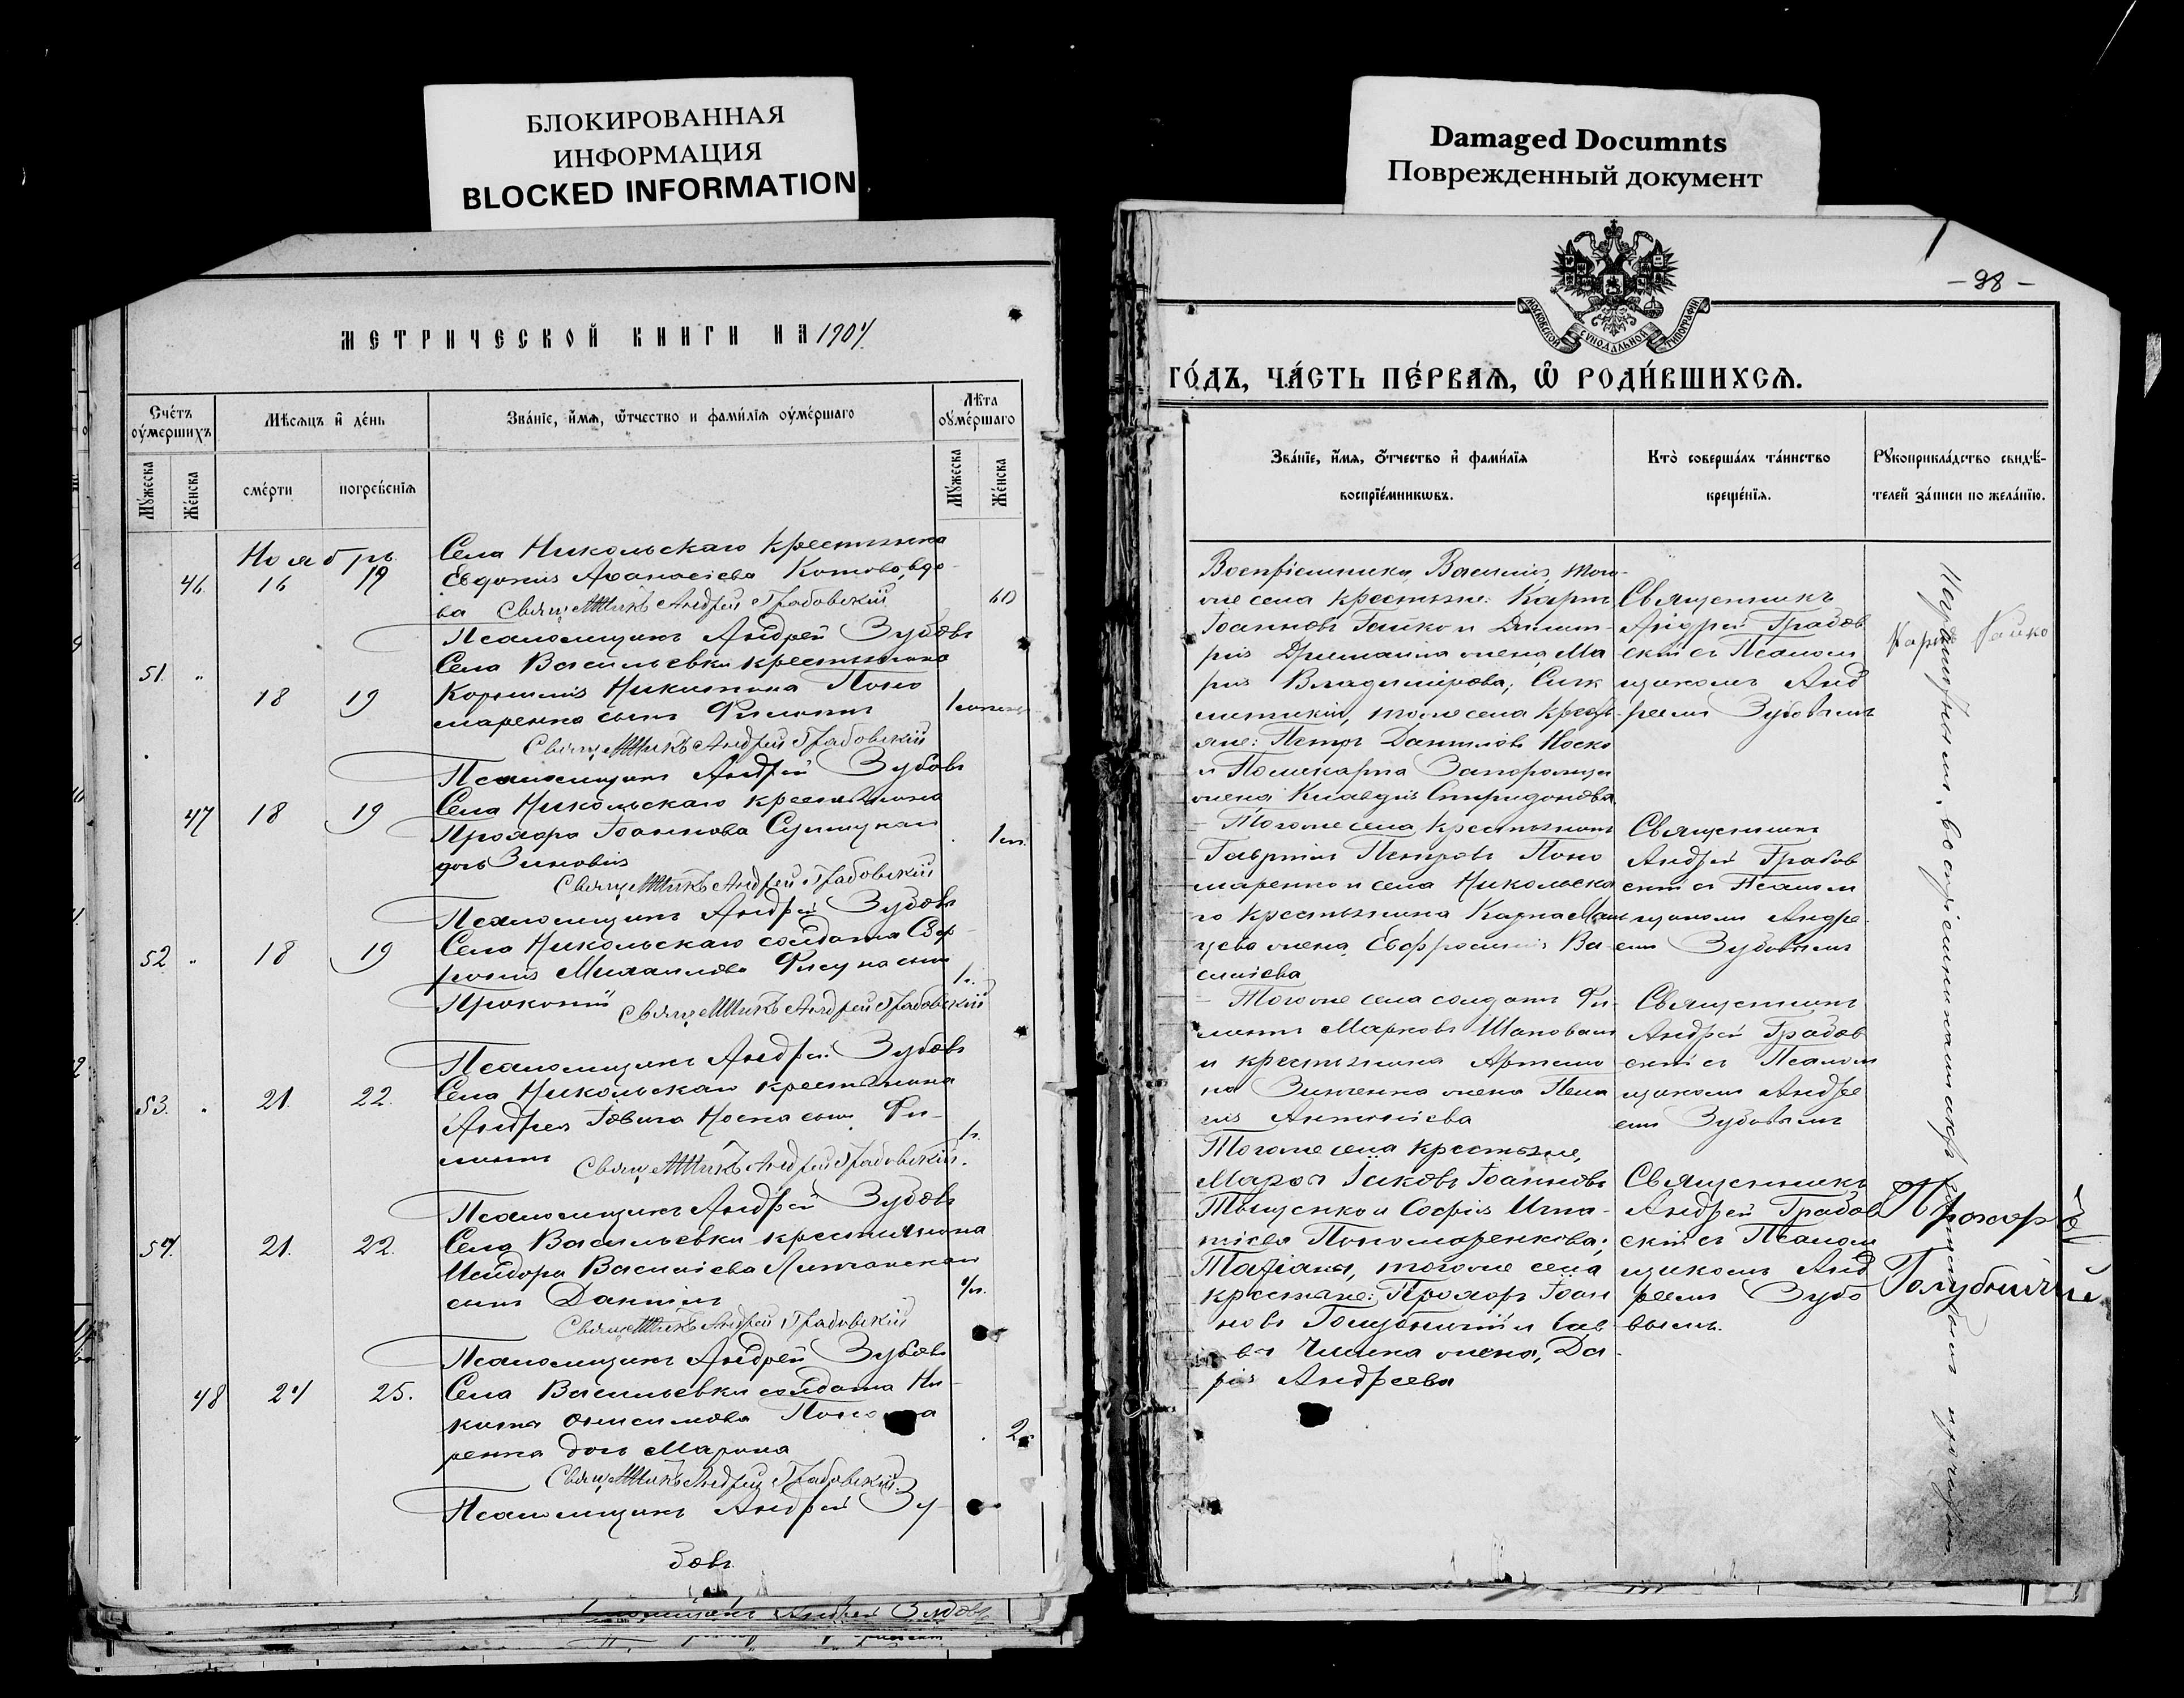 БЛОКИРОВАННАЯ
ИНФОРМАЦИЯ
BLOCKED INFORMATION
Damaged Documnts
Поврежденный документ
МЕТРИЧЕСКОЙ КНИГИ НА 1904
Счéтъ ᲂумершихъ
Мѣсяцъ и҆ дéнь
Звáнїе, и҆́мѧ, ѿтчество и фами́лїѧ ᲂумéршаго
Лѣта ᲂумéршаго
Мꙋжеска
Жéнска
смéрти
погребéнїѧ
Мꙋжеска
Жéнска
Ноябрь
46. 16 19
Села Никольскаго крестьянка
Евдокія Аѳанасіева Котова, вдо-
ва
60
Священникъ Андрей Грабовскій
Псаломщикъ Андрей Зубовъ
51. „ 18 19
Села Васильевки крестьянина
Корнилія Никитина Поно
маренка сынъ Филиппъ
Священникъ Андрей Грабовскій
Псаломщикъ Андрей Зубовъ
47 18 19
Села Никольскаго крестьянина
Прохора Іоаннова
дочь Зиновія
Священникъ Андрей Грабовскій
Псаломщикъ Андрей Зубовъ
52. „ 18 19
Села Никольскаго солдата
Михаилова сынъ
Прокопій
1 г.
Священникъ Андрей Грабовскій
Псаломщикъ Андрей Зубовъ
53. „ 21. 22.
Села Никольскаго крестьянина
Андрея Іовича Носка сынъ Фи-
липпъ
1 г.
Священникъ Андрей Грабовскій.
Псаломщикъ Андрей Зубовъ
54. 21. 22.
Села Васильевки крестьянина
Исидора Василіева
сынъ Даниилъ
Священникъ Андрей Грабовскій
Псаломщикъ Андрей Зубовъ
48 24 25.
Села Васильевки солдата Ни-
киты Онисимова Поно
ренка дочь Марина
2
Священникъ Андрей Грабовскій.
Псаломщикъ Андрей Зу-
бовъ
– 98 –
МОСКОВСКОЙ СѴНОДАЛЬНОЙ ТИПОГРАФІИ
ГО́ДЪ, ЧА́СТЬ ПЕ́РВАѦ, Ѽ РОДИ́ВШИХСѦ.
Звáнїе, и҆́мѧ, ѻ҆́тчество и҆ фами́лїѧ
воспрїéмникѡвъ.
Кто̀ совершáлъ тáинство
крещéнїѧ.
Рꙋкоприклáдство свидѣ́-
телей зáписи по желáнїю.
Воспріемники Василія, того-
же села крестьяне: Карпъ
Іоанновъ Гайко и Димит-
рія жена, Ма
рія Владимірова;
того же села кресть-
яне: Петръ Даниловъ Носко
и Поликарпа Запорожца
жена Клавдія Спиридонова
Священникъ
Андрей Грабов
скій съ Псалом
щикомъ Анд
реемъ Зубовымъ
Карпъ Гайко
Тогоже села крестьянинъ
Гавріилъ Петровъ Поно
маренко и села Никольска
го крестьянина Карпа
жена, Евфросинія Ва-
силіева
Священникъ
Андрей Грабов
скій съ Псалом
щикомъ Андре-
емъ Зубовымъ
Тогоже села солдатъ Фи-
липпъ Марковъ Шаповалъ
и крестьянина
Зинченка жена Пела
гія Антоніева
Священникъ
Андрей Грабов
скій съ Псалом
щикомъ Андре
емъ Зубовымъ
Тогоже села крестьяне,
Іаковъ Іоанновъ
Тыщенко и Софія Игна-
тіева Пономаренкова;
Татіаны, тогоже села
крестьяне: Прохоръ Іоан
новъ Голубничій и Сав
вы жена, Да-
рія Андреева
Священникъ
Андрей Грабов
скій съ Псалом
щикомъ Анд
реемъ Зубо
вымъ.
Прохоръ
Голубничій